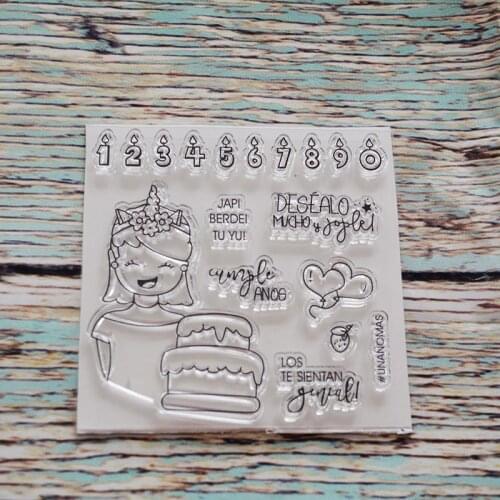 1 2 3 4 5 6 7 8 9 0
JAPI
BERDEI
TU YU!
DESÉALO
MUCHO y sople!
cumple
AÑOS
LOS
TE SIENTAN
genial!
#UNAÑOMÁS